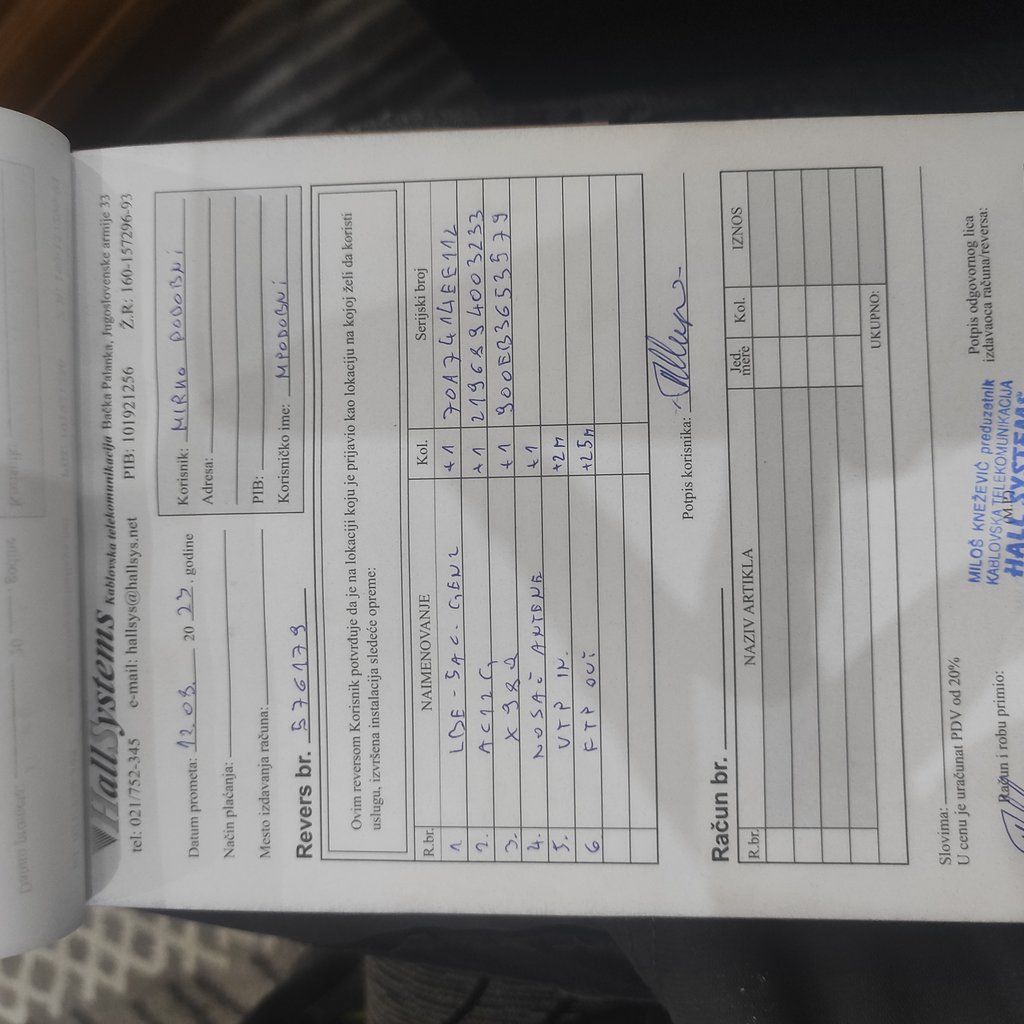 HallSystems Kablovska telekomunikacija Bačka Palanka, Jugoslovenske armije 33
tel: 021/752-345 e-mail: hallsys@hallsys.net PIB: 101921256 Ž.R: 160-157296-93
Datum prometa: 12.03. 2023. godine
Način plaćanja:
Mesto izdavanja računa:
Korisnik: MIRKO PODOBNI
Adresa:
PIB:
Korisničko ime: MPODOBNI
Revers br. 576179
Ovim reversom Korisnik potvrđuje da je na lokaciji koju je prijavio kao lokaciju na kojoj želi da koristi
uslugu, izvršena instalacija sledeće opreme:
R.br. NAIMENOVANJE Kol. Serijski broj
1 LBE-5AC-GEN2 +1 70A7414EE112
2. AC12G +1 2196994003233
3. +1 900EB3653579
4. NOSAČ ANTENE +1
5. UTP IN. +2m
6 FTP OUT +25m
Potpis korisnika:
Račun br.
R.br. NAZIV ARTIKLA Jed. mere Kol. IZNOS
UKUPNO:
Slovima:
U cenu je uračunat PDV od 20%
Račun i robu primio:
M.P.
Potpis odgovornog lica
izdavaoca računa/reversa:
MILOŠ KNEŽEVIĆ preduzetnik
KABLOVSKA TELEKOMUNIKACIJA
HALL SYSTEMS